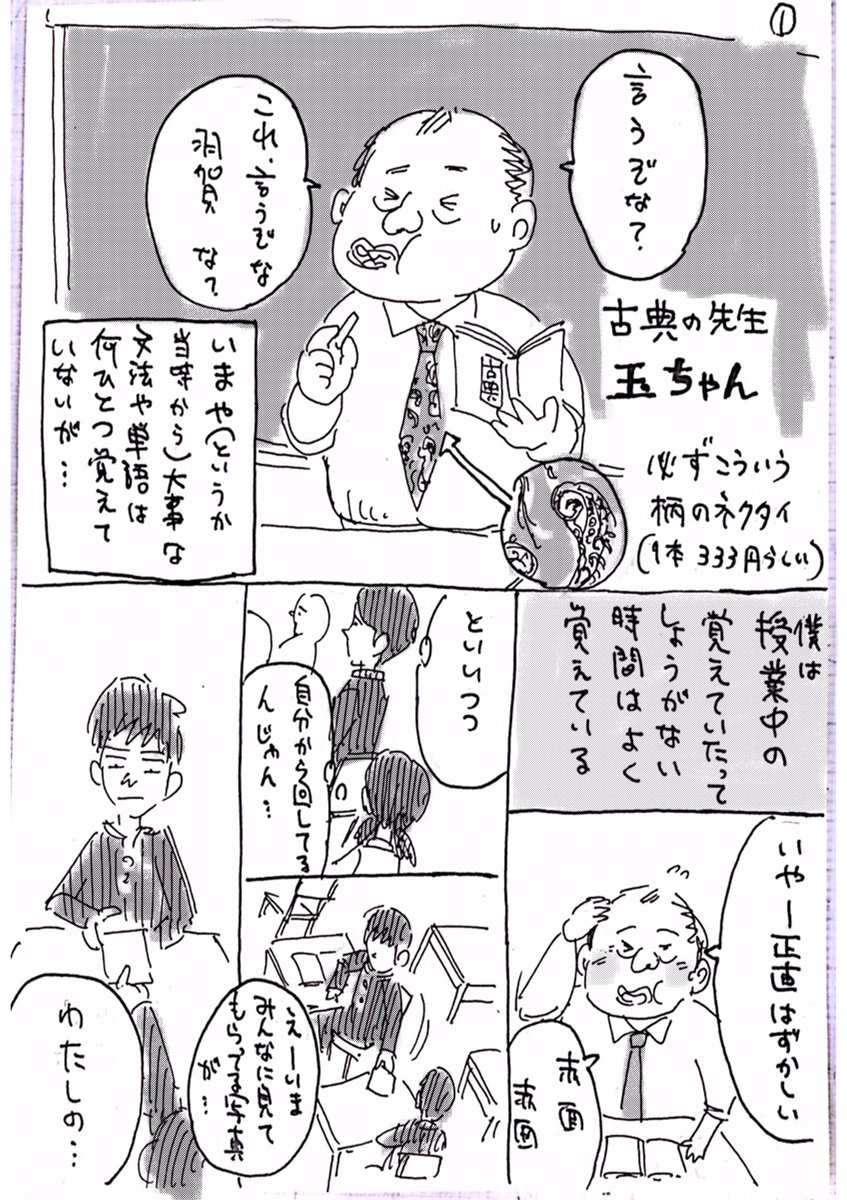 ①
言うぞな?
これ、言うぞな
羽賀 な?
古典の先生
玉ちゃん
古典
必ずこういう
柄のネクタイ
(1本 333円らしい)
いまや(というか
当時から)大事な
文法や単語は
何ひとつ覚えて
いないが…
僕は
授業中の
覚えていたって
しょうがない
時間はよく
覚えている
いやー正直はずかしい
赤面
赤面
といいつつ
自分から回してる
んじゃん…
えーいま
みんなに見て
もらってる写真
が…
わたしの…